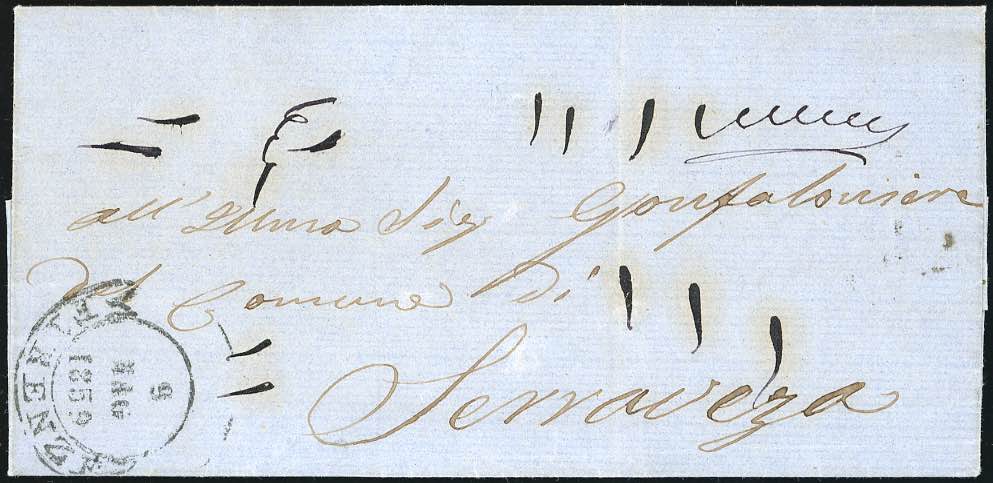 all'Illmo Sig Gonfaloniere
del Comune di
Serraveza
FIRENZE
9
MAG
1859